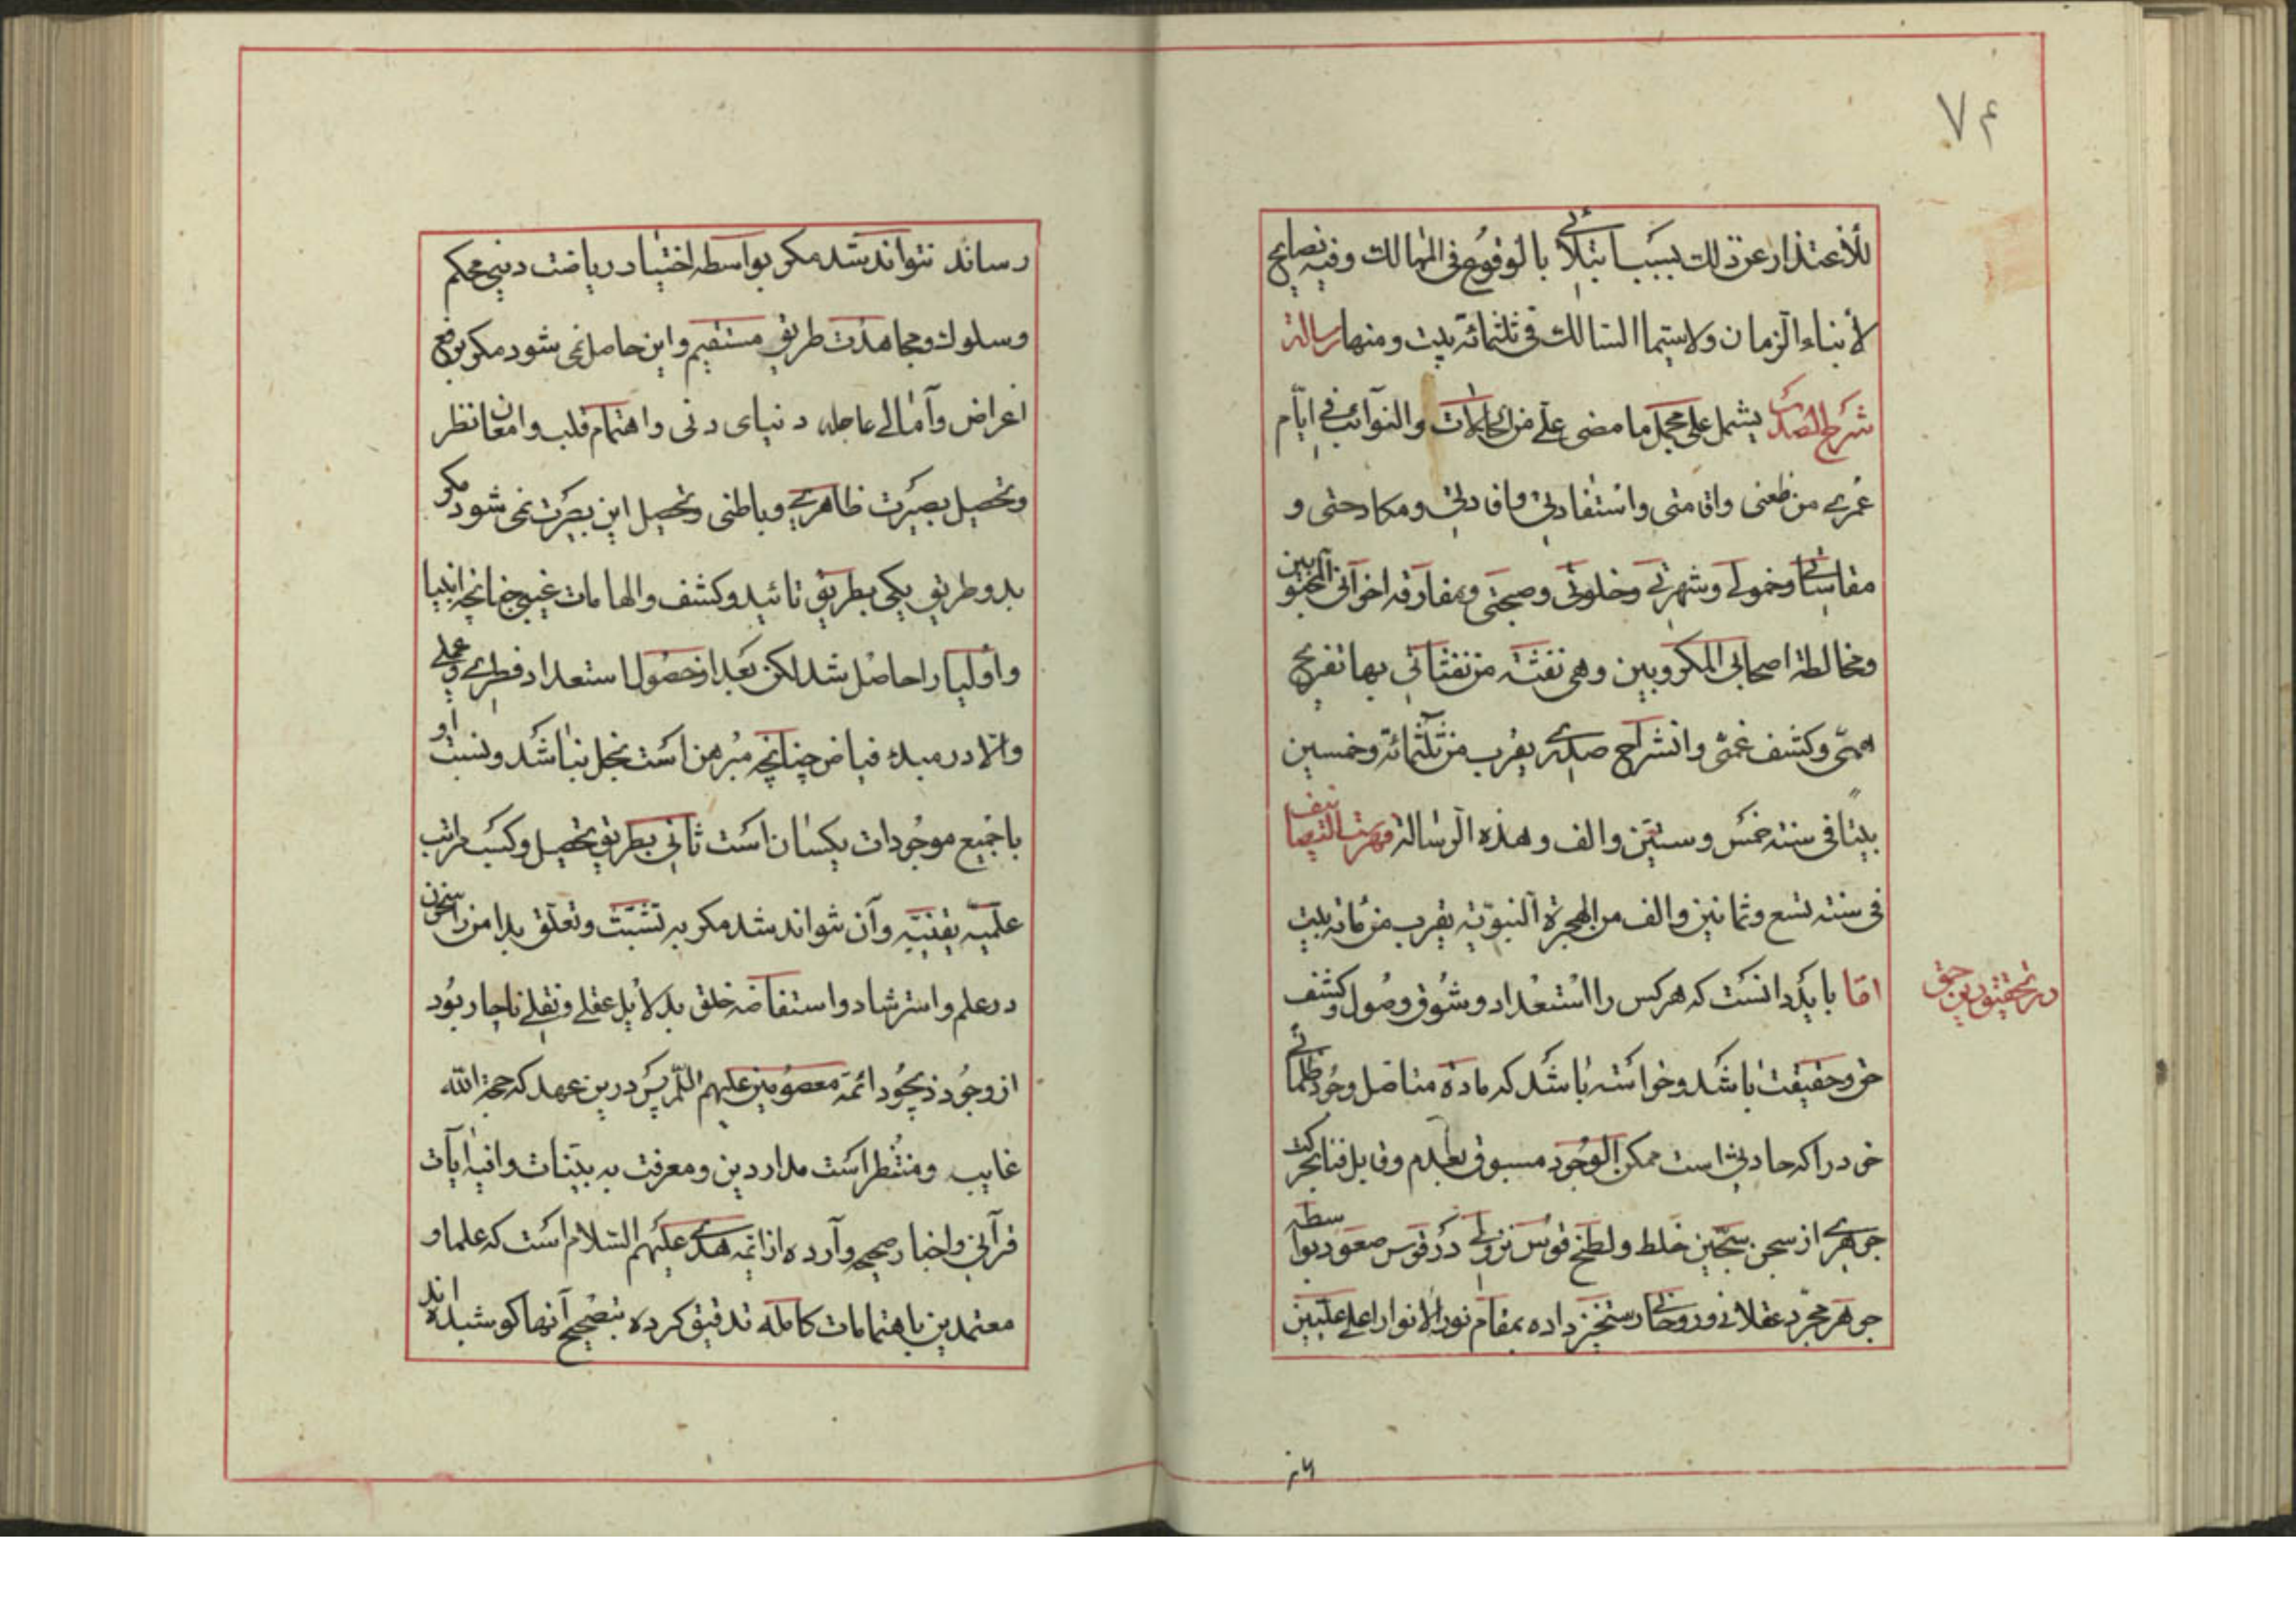 ۷۴
للأعتذار عن ذلك بسبب ابتلائی بالوقوع فی المهالك وفیه نصایح
لأبناء الزمان ولاسیما السالك فی ثلثمائة بیت ومنها رسالة
شرح الصدر یشمل علی مجمل ما مضی علی من الحالات والنوآئب فی ایّام
عُمری من ظعنی واقامتی واستفادتی وافادتی ومكادحتی و
مقاساتی وخمولی وشهرتی وخلوتی وصحبتی ومفارقه اخوآنی المحبوبین
ومخالطة اصحابی المكروبین وهی نفثة من نفثاتی بها تفریح
همّی وكشف غمّی وانشراح صدری یقرب من ثلثمائة وخمسین
بیتا فی سنته خمس وستین والف وهذه الرسالة فهرست التصانیف
فی سنته تسع وثمانین والف من الهجرة النبویّة یقرب من مائه بیت
امّا باید دانست که هرکس را استعداد وشوق وصول وکشف
در تحقیق دین حق
حق وحقیقت باشد وخواسته باشد که ماده متاصل وجُود ظلمانی
خود را که حادث است ممکن الوجود مسبوق بعدم وقابل فنا بحرکت
جوهری از سجن سجّین خلط ولطخ قوس نزولی در قوس صعود بواسطه
جوهر مجرّد عقلانی وروحانی رستخیز داده بمقام نور الانوار اعلی علّیین
رساند نتواند شد مکر بواسطه اختیار ریاضت دینی محکم
وسلوك ومجاهدت طریق مستقیم واین حاصل نمی شود مکر برفع
اغراض وآمالی عاجله دنیای دنی واهتمام قلب وامعان نظر
وتحصیل بصیرت ظاهری وباطنی وتحصیل این بصیرت نمی شود مکر
بدو طریق یکی بطریق تائید وکشف والهامات غیبی چنانچه انبیا
واولیا را حاصل شد لکن بعد از حصول استعداد فطری وعملی
والّا در مبدء فیاض چنانچه مُبرهن است بخل نباشد ونسبت او
با جمیع موجُودات یکسان است ثانی بطریق تحصیل وکسب مراتب
علمیّه یقینیّه وآن نتواند شد مکر به تشبّث وتعلّق بدامن راسخون
در علم واسترشاد واستفاضه خلق بدلائل عقلی ونقلی ناچار بُود
از وجُود ذیجُود ائمّه معصومین علیهم السّلم پس درین عهد که حجة الله
غایب ومنتظر است مدار دین ومعرفت به بیّنات وانبه آیات
قرآنی واخبار صحیحه وآرده از ائمّه هدی علیهم السلام است که علما و
معتمدین باهتمامات کامله تدقیق کرده بتصحیح آنها کوشیده اند